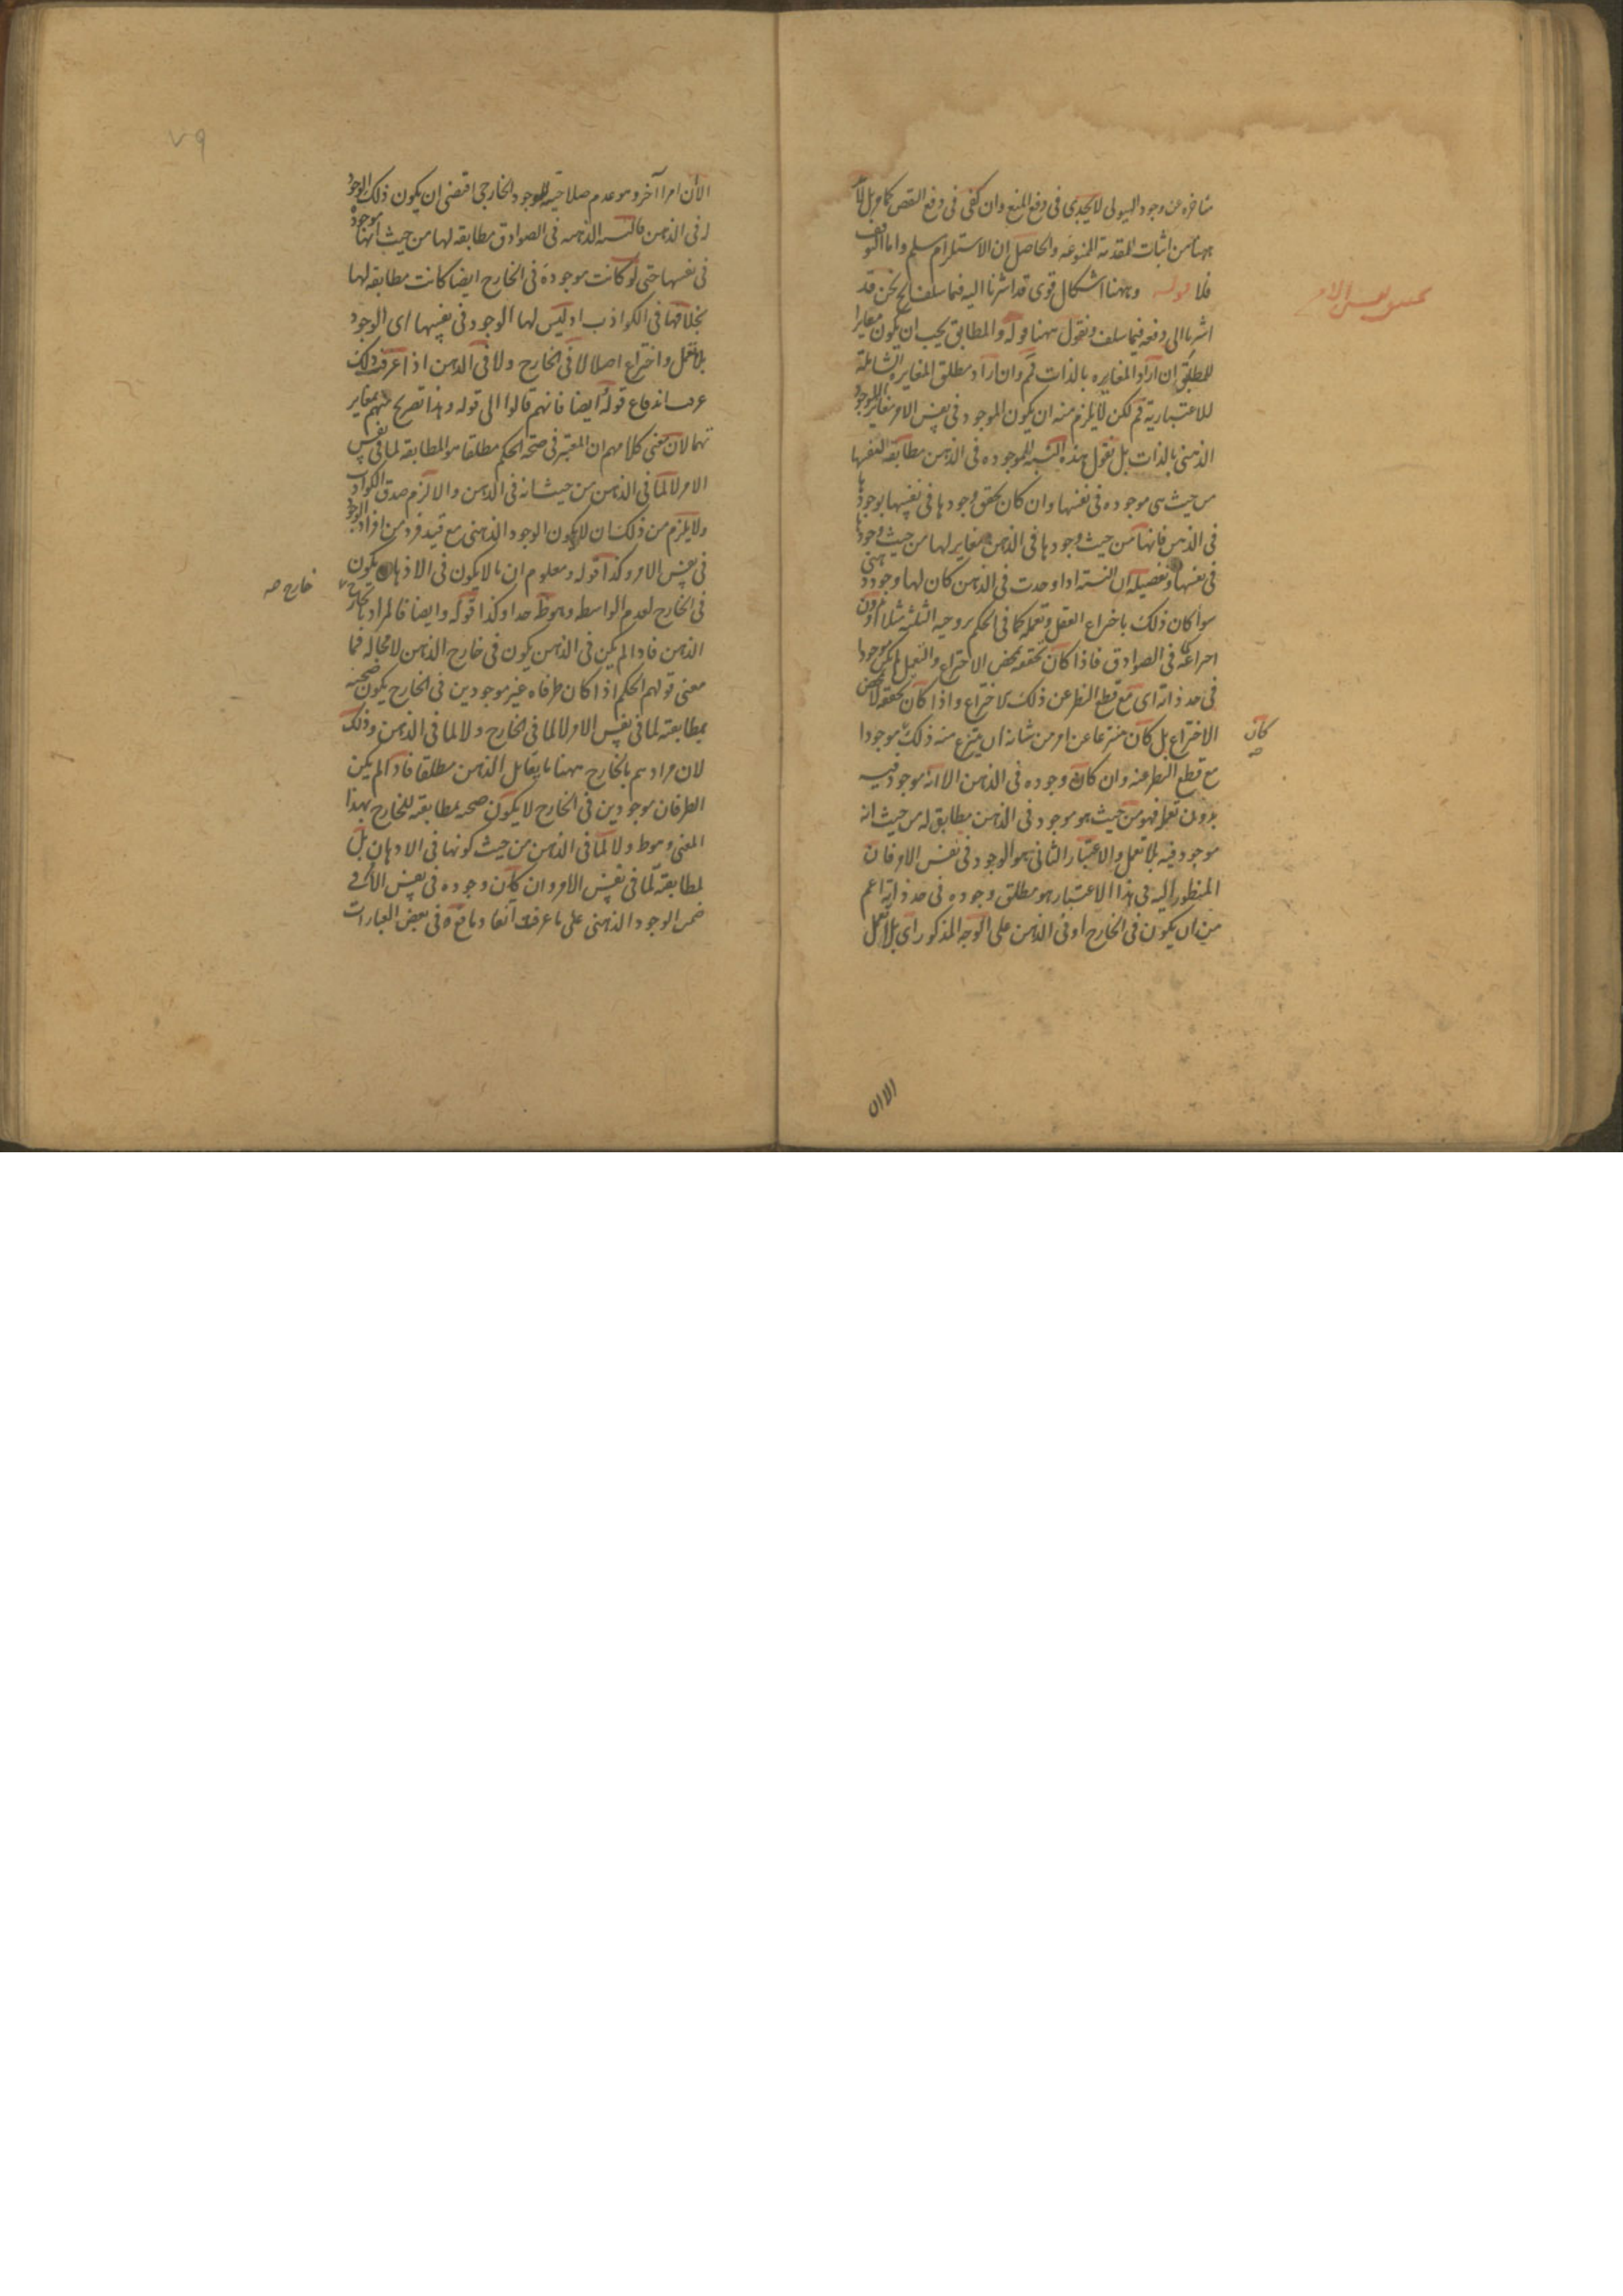 متاخره عن وجود الهيولى لا يجدى فى دفع المنع وان كفى فى دفع النقص كما مر بل لا
ههنا من اثبات المقدمة الممنوعه والحاصل ان الاستلزام مسلم واما التوقف
فلا قوله وههنا اشكال قوى قد اشرنا اليه فيما سلف نحن قد
اشرنا الى دفعه فيما سلف ونقول ههنا قوله والمطابق يجب ان يكون مغايرا
للمطابق ان اراد المغايره بالذات فم وان اراد مطلق المغايره الشاملة
للاعتبارية فم لكن لا يلزم منه ان يكون الموجود فى نفس الامر مغاير للموجود
الذهنى بالذات بل نقول هذه النسبه الموجوده فى الذهن مطابقة لنفسها
من حيث هى موجوده فى نفسها وان كان تحقق وجودها فى نفسها بوجودها
فى الذهن فانها من حيث وجودها فى الذهن مغاير لها من حيث وجودها
فى نفسها وتفصيله ان النسبة اذا وجدت فى الذهن كان لها وجود ذهنى
سواء كان ذلك باختراع العقل وتعمله كما فى الحكم بزوجيه الثلثة مثلا او دون
اختراعه كما فى الصوادق فاذا كان تحققه بمحض الاختراع والتعمل لم يكن موجودا
فى حد ذاته اى مع قطع النظر عن ذلك الاختراع واذا كان تحققه لا بمحض
الاختراع بل كان منتزعا عن امر من شانه ان ينتزع منه ذلك موجودا
كان
مع قطع النظر عنه وان كان وجوده فى الذهن الا انه موجود فيه
بدون تعمل فهو من حيث هو موجود فى الذهن مطابق له من حيث انه
موجود فيه بلا تعمل والاعتبار الثانى هو الوجود فى نفس الامر فان
المنظور اليه فى هذا الاعتبار هو مطلق وجوده فى حد ذاته اعم
من ان يكون فى الخارج او فى الذهن على الوجه المذكور اى بلا تعمل
الا ان
٧٩
الا ان امرا آخر وهو عدم صلاحيته للوجود الخارجى اقتضى ان يكون ذلك الوجود
له فى الذهن فالنسبه الذهنيه فى الصوادق مطابقه لها من حيث انها موجودة
فى نفسها حتى لو كانت موجودة فى الخارج ايضا كانت مطابقه لها
بخلافها فى الكواذب اذ ليس لها الوجود فى نفسها اى الوجود
بلا تعمل واختراع اصلا لا فى الخارج ولا فى الذهن اذا عرفت ذلك
عرفت اندفاع قوله ايضا فانهم قالوا الى قوله وهذا تصريح منهم بمغاير
تهما لان معنى كلامهم ان المعتبر فى صحة الحكم مطلقا هو المطابقة لما فى نفس
الامر لا لما فى الذهن من حيث انه فى الذهن والا لزم صدق الكواذب
ولا يلزم من ذلك ان لا يكون الوجود الذهنى مع قيد فرد من افراد الوجود
فى نفس الامر وكذا قوله ومعلوم ان ما لا يكون فى الاذهان يكون
فى الخارج لعدم الواسطه وهو ظ جدا وكذا قوله وايضا فالمراد بالخارج
خارج صح
الذهن فاذا لم يكن فى الذهن يكون فى خارج الذهن لا محاله فما
معنى قولهم الحكم اذا كان طرفاه غير موجودين فى الخارج يكون صحته
بمطابقته لما فى نفس الامر لا لما فى الخارج ولا لما فى الذهن وذلك
لان مرادهم بالخارج ههنا ما يقابل الذهن مطلقا فاذا لم يكن
الطرفان موجودين فى الخارج لا يكون صحته بمطابقته للخارج بهذا
المعنى وهو ظ ولا لما فى الذهن من حيث كونها فى الاذهان بل
لمطابقته لما فى نفس الامر وان كان وجوده فى نفس الامر فى
ضمن الوجود الذهنى على ما عرفت آنفا وما وقع فى بعض العبارات